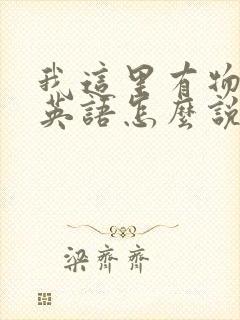 我這里有物
英語怎麼說
梁齊齊